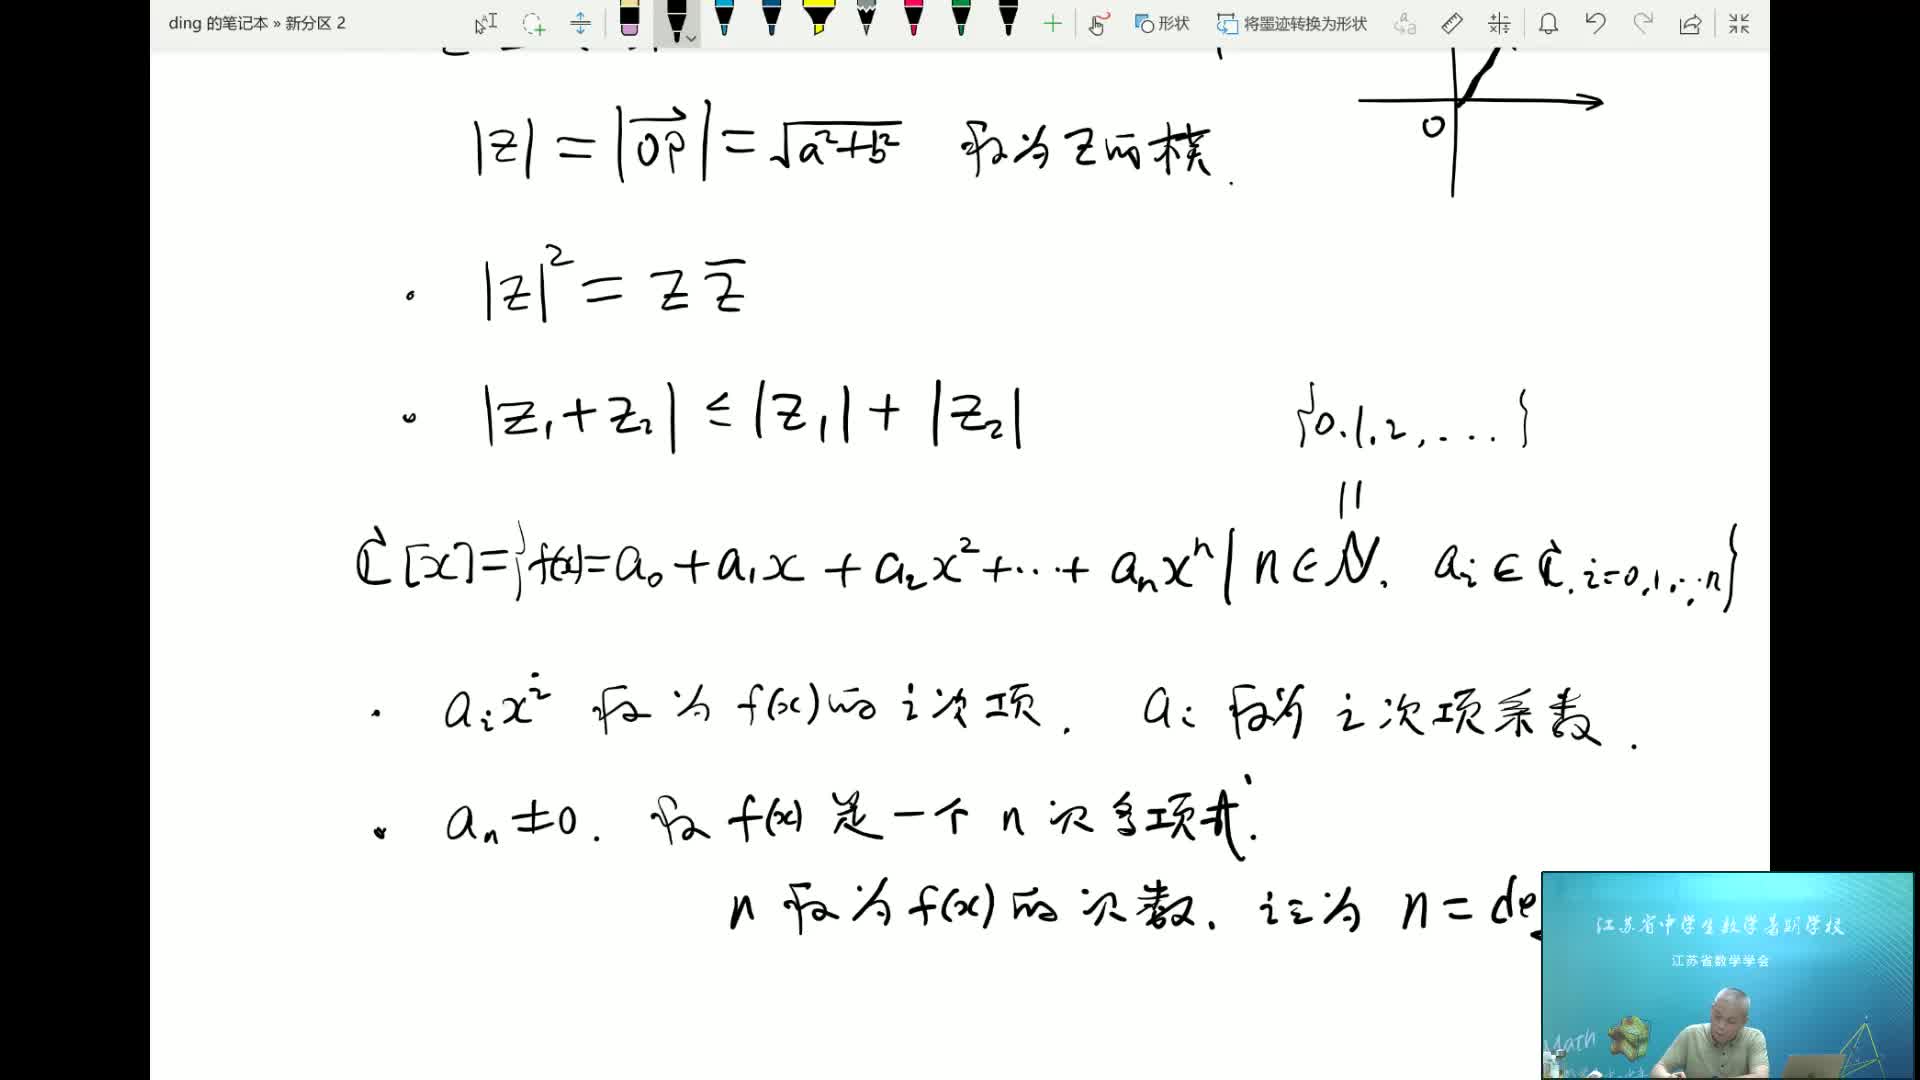 ding 的笔记本 » 新分区 2
形状
将墨迹转换为形状
|z| = |OP| = √a²+b² 称为 z 的模.
0
· |z|² = z z̄
· |z₁+z₂| ≤ |z₁| + |z₂|
{0.1.2,....}
||
ℂ[x]={f(x)=a₀+a₁x+a₂x²+···+aₙxⁿ | n∈ℕ. aᵢ∈ℂ. i=0,1,...n}
· aᵢxⁱ 称为 f(x) 的 i 次项. aᵢ 称为 i 次项系数.
· aₙ≠0. 称 f(x) 是一个 n 次多项式.
n 称为 f(x) 的次数. 记为 n = deg
江苏省中学生数学暑期学校
江苏省数学学会
Math